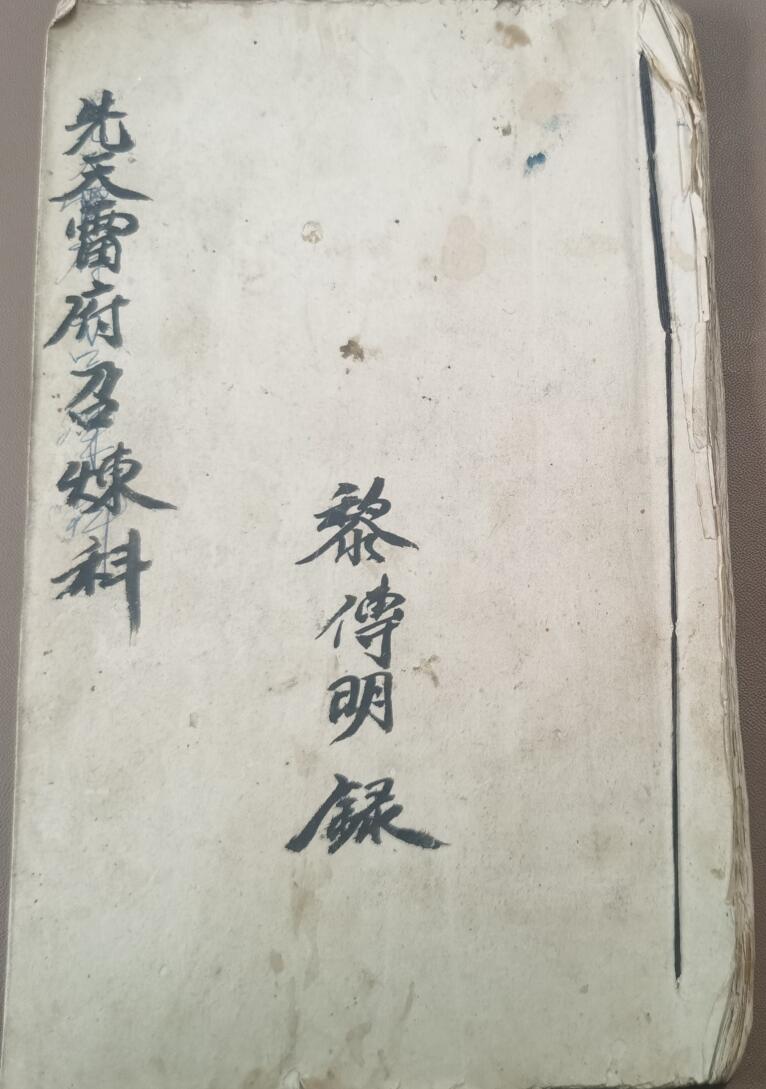 先天雷府召煉科
黎傳明録